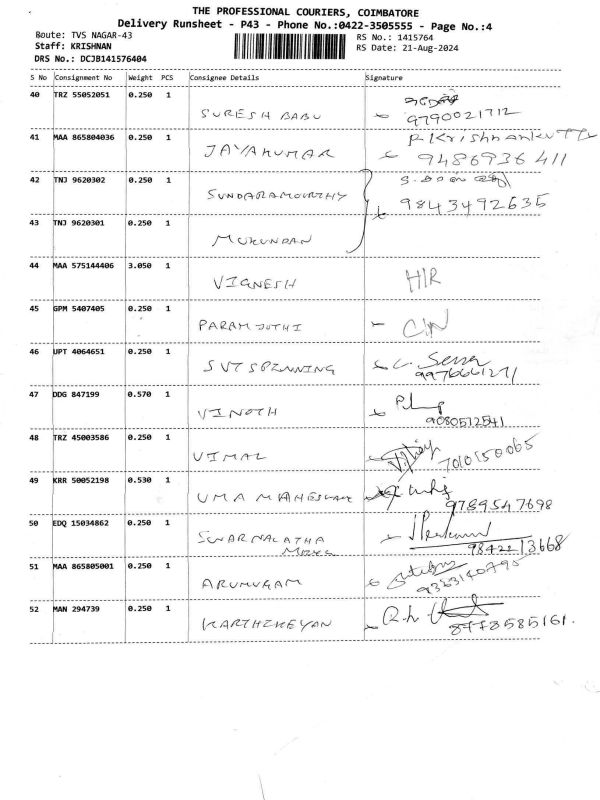 THE PROFESSIONAL COURIERS, COIMBATORE
Delivery Runsheet - P43 - Phone No.:0422-3505555 - Page No.:4
Route: TVS NAGAR-43 RS No.: 1415764
Staff: KRISHNAN RS Date: 21-Aug-2024
DRS No.: DCJB141576404
S No Consignment No Weight PCS Consignee Details Signature
40 TRZ 55052051 0.250 1 SURESH BABU 9790021712
41 MAA 865804036 0.250 1 JAYAKUMAR 9486936411
42 TNJ 9620302 0.250 1 SUNDARAMOURTHY 9843492635
43 TNJ 9620301 0.250 1 MUKUNDAN
44 MAA 575144406 3.050 1 VIGNESH H/R
45 GPM 5407405 0.250 1 PARAMJOTHI
46 UPT 4064651 0.250 1 SVT SPINNING
47 DDG 847199 0.570 1 VINOTH 9080572541
48 TRZ 45003586 0.250 1 VIMAL 7010150065
49 KRR 50052198 0.530 1 UMA MAHESWARI 9789547698
50 EDQ 15034862 0.250 1 SWARNALATHA 9842213668
51 MAA 865805001 0.250 1 ARUMUGAM 9363140795
52 MAN 294739 0.250 1 KARTHIKEYAN 8778585161.